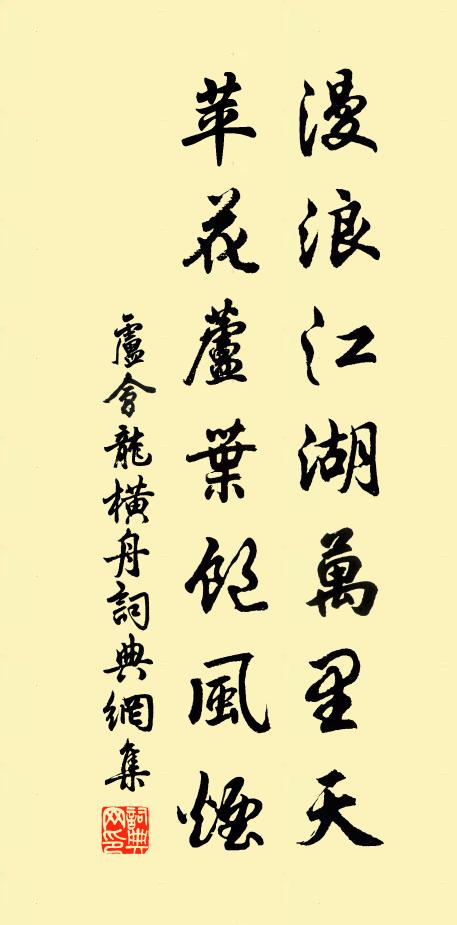 漫浪江湖萬里天
苹花蘆葉飽風煙
盧會龍橫舟詞典網集
詞典网印